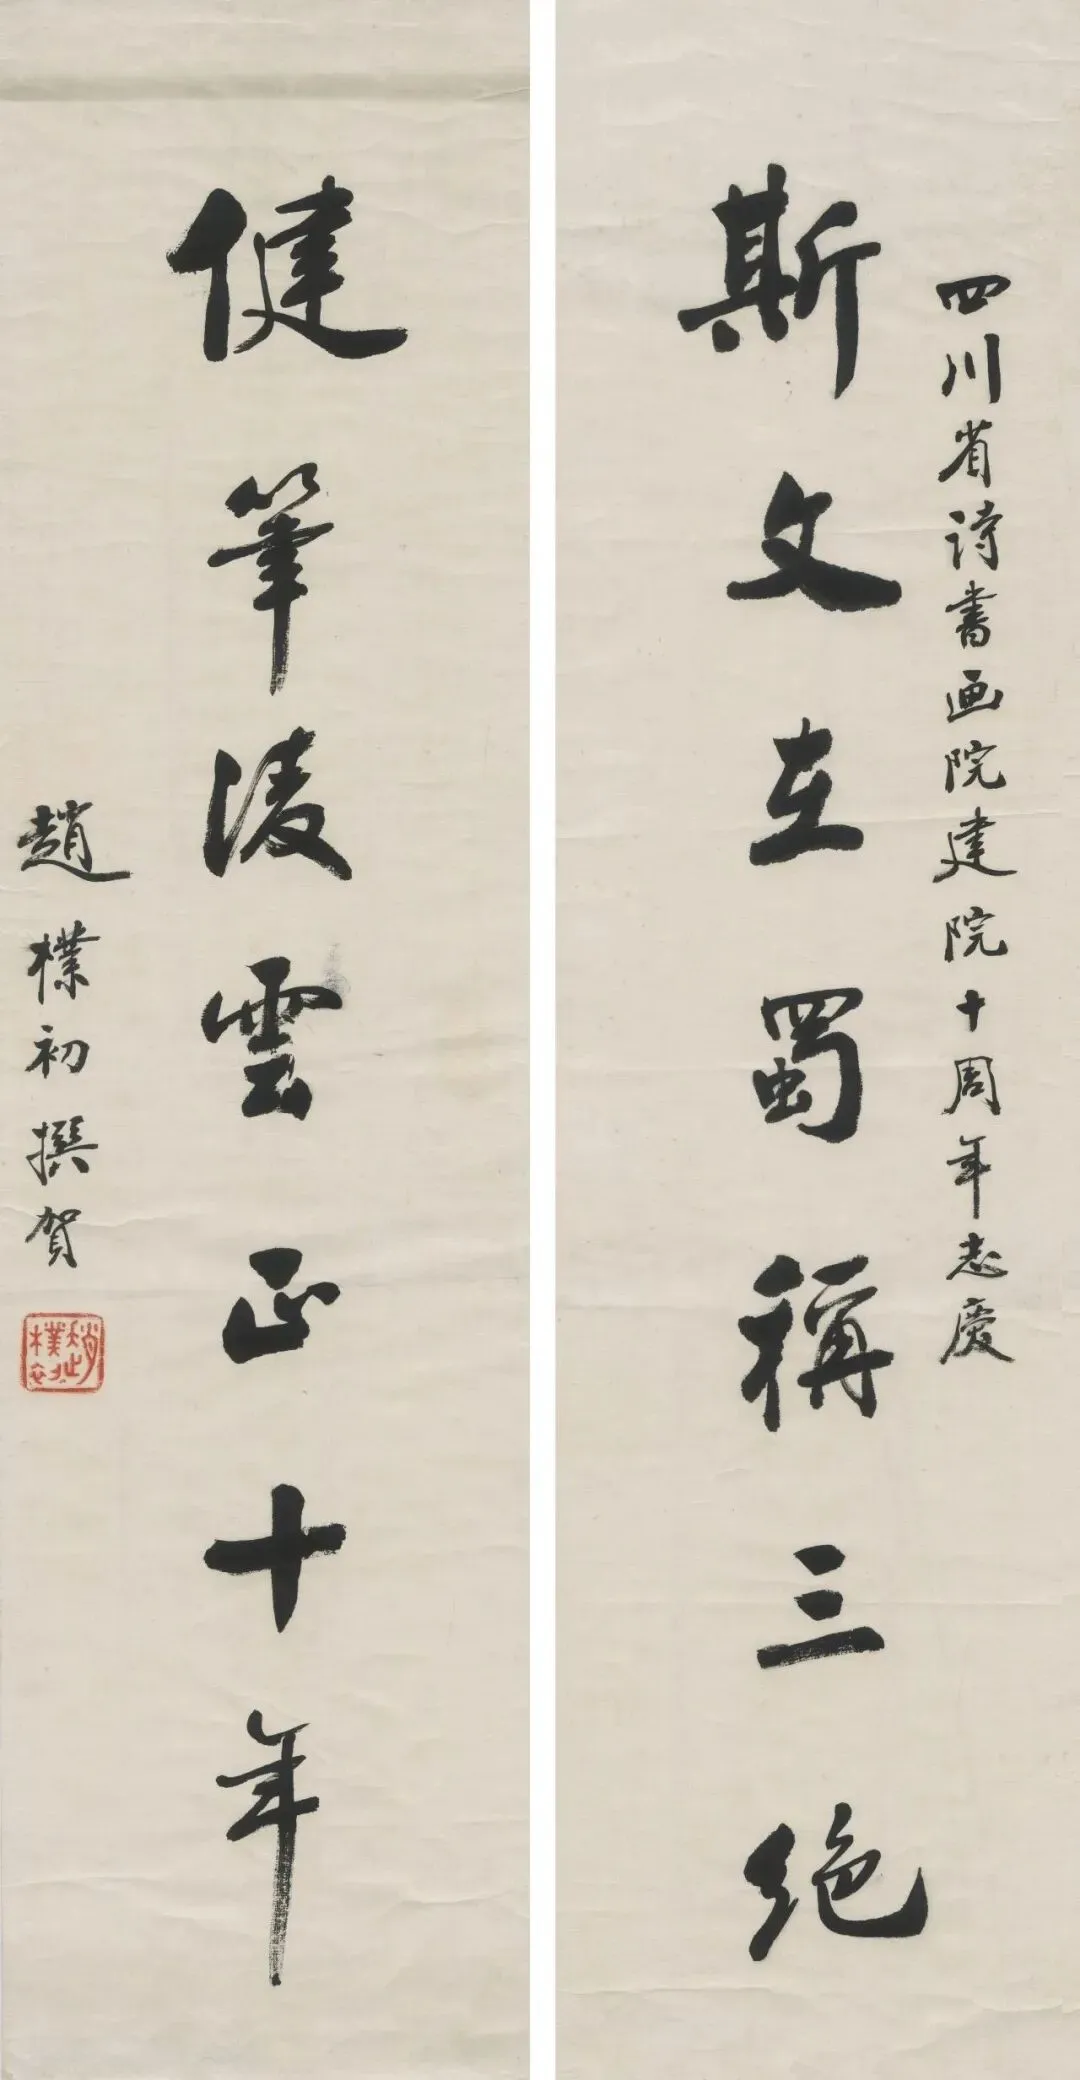 四川省诗书画院建院十周年志慶
斯文在蜀稱三绝
健筆凌雲正十年
趙樸初撰贺
趙樸初